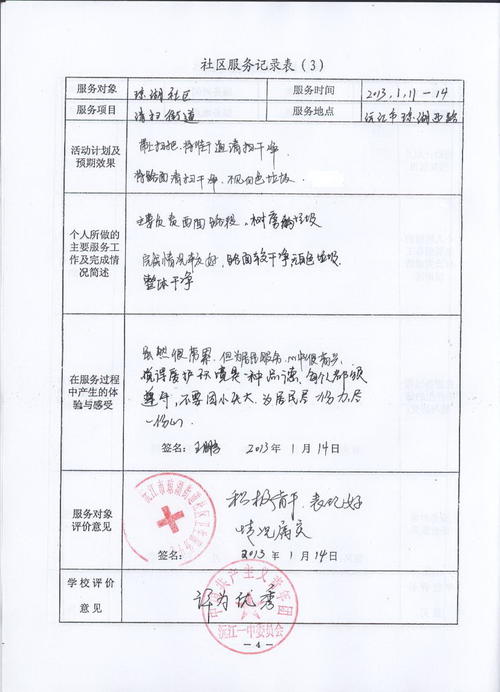 社区服务记录表（3）
服务对象 琼湖社区 服务时间 2013.1.11-14
服务项目 清扫街道 服务地点 沅江市琼湖西路
活动计划及
预期效果
带扫把，将街道清扫干净
将路面清扫干净，不见白色垃圾
个人所做的
主要服务工
作及完成情
况简述
主要负责西面路段、树旁的垃圾
完成情况较好，路面较干净无白色垃圾
整体干净
在服务过程
中产生的体
验与感受
虽然很劳累，但为居民服务，心中很高兴
觉得爱护环境是一种品德，每个人都很
不要因小失大，为居民尽一份力尽
一份心
签名： 2013年1月14日
服务对象
评价意见
积极肯干，表现好
情况属实
签名： 2013年1月14日
沅江市琼湖街道社区卫生服务
学校评价
意见
评为优秀
中国共产主义青年团
沅江一中委员会
－4－